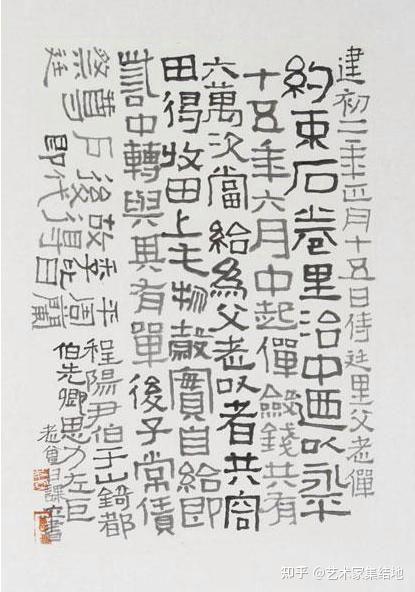 建初二年正月十五日侍廷里父老僤
約束石卷里治中迺以永平
十五年六月中起僤斂錢共有
六萬次當給為父老以者共容
田得收田上毛物穀實自給即
訾中轉與其有單後子常債
祭尊戶後故季平
廷即代得巨蘭
程陽尹伯于山錡都
伯先卿思力左巨
知乎 @艺术家集结地